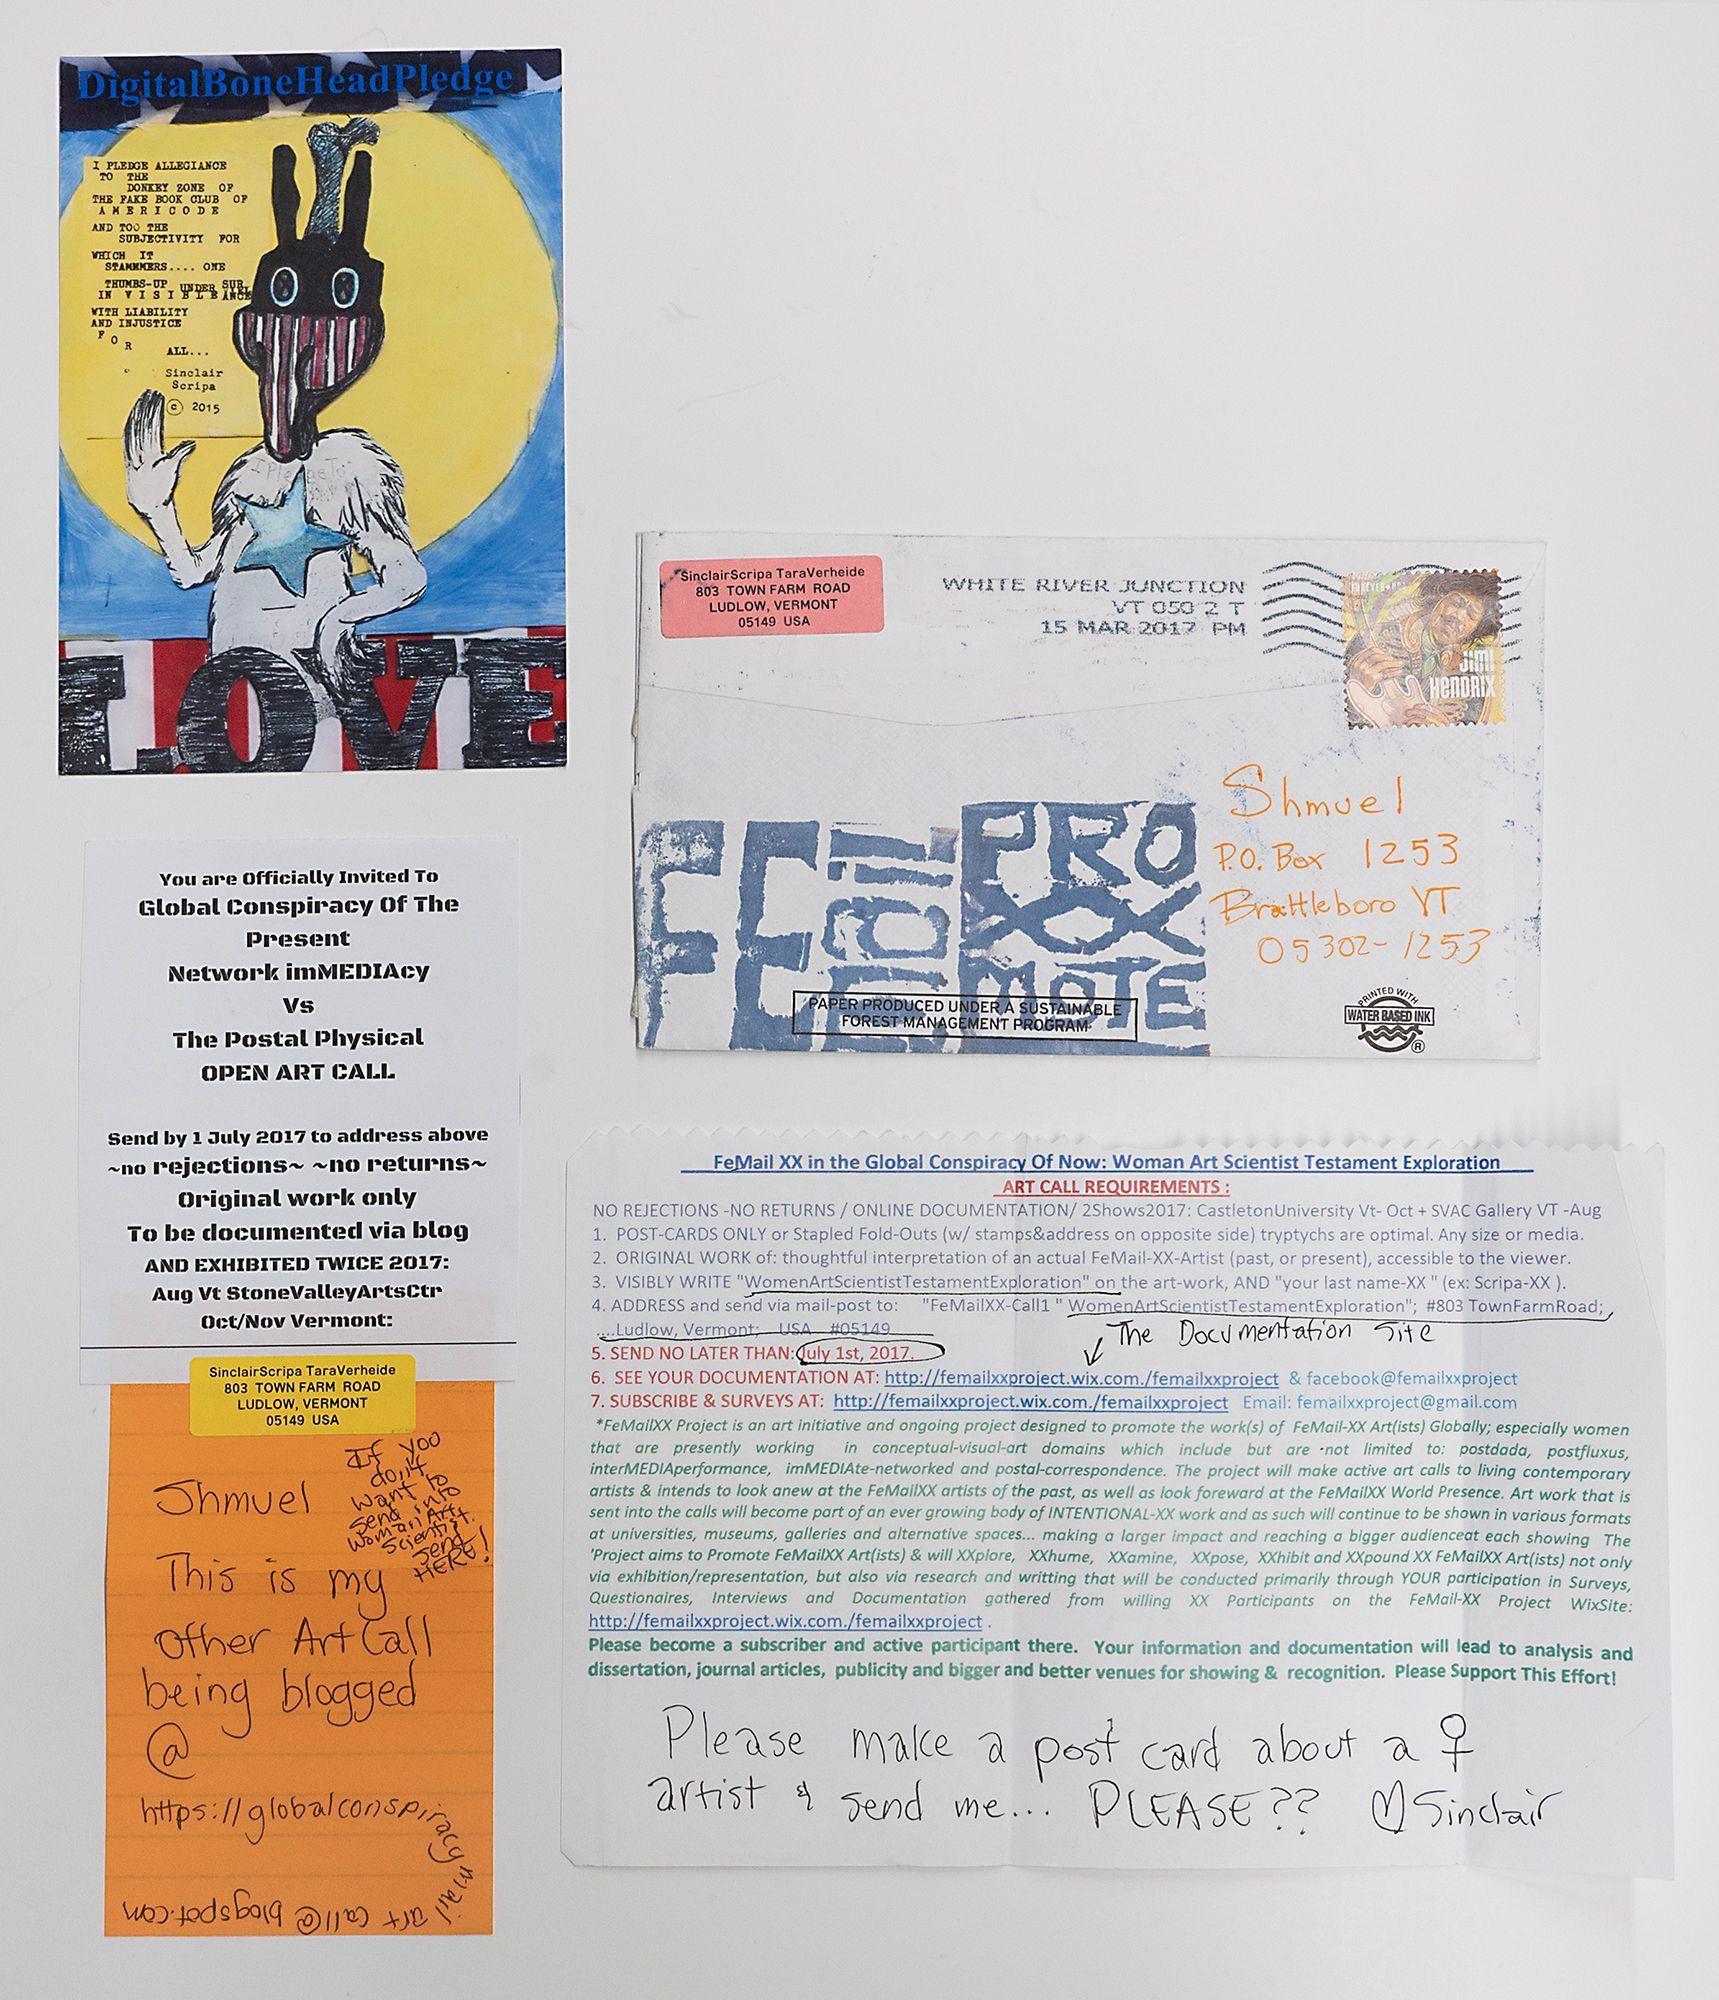 DigitalBoneHeadPledge
I PLEDGE ALLEGIANCE
TO THE
DONKEY ZONE OF
THE FAKE BOOK CLUB OF
AMERICODE
AND TOO THE
SUBJECTIVITY FOR
WHICH IT
STAMMMERS.... ONE
THUMBS-UP UNDER SUR
IN VISIBLE
WITH LIABILITY
AND INJUSTICE
FOR
ALL...
Sinclair
Scripa
© 2015
I Pledge To
LOVE
SinclairScripa TaraVerheide
803 TOWN FARM ROAD
LUDLOW, VERMONT
05149 USA
WHITE RIVER JUNCTION
VT 050 2 T
15 MAR 2017 PM
FOREVER
JIMI
HENDRIX
Shmuel
P.O. Box 1253
Brattleboro VT
05302-1253
PRO
XX
MOTE
PAPER PRODUCED UNDER A SUSTAINABLE
FOREST MANAGEMENT PROGRAM
PRINTED WITH
WATER BASED INK
®
You are Officially Invited To
Global Conspiracy Of The
Present
Network imMEDIAcy
Vs
The Postal Physical
OPEN ART CALL
Send by 1 July 2017 to address above
~no rejections~ ~no returns~
Original work only
To be documented via blog
AND EXHIBITED TWICE 2017:
Aug Vt StoneValleyArtsCtr
Oct/Nov Vermont:
SinclairScripa TaraVerheide
803 TOWN FARM ROAD
LUDLOW, VERMONT
05149 USA
If you
do,it
want to
send into
Woman Art
Scientist
Send
HERE!
Shmuel
This is my
other Art Call
being blogged
@
https://globalconspiracymail art call@blogspot.com
FeMail XX in the Global Conspiracy Of Now: Woman Art Scientist Testament Exploration
ART CALL REQUIREMENTS :
NO REJECTIONS -NO RETURNS / ONLINE DOCUMENTATION/ 2Shows2017: CastletonUniversity Vt- Oct + SVAC Gallery VT -Aug
1. POST-CARDS ONLY or Stapled Fold-Outs (w/ stamps&address on opposite side) tryptychs are optimal. Any size or media.
2. ORIGINAL WORK of: thoughtful interpretation of an actual FeMail-XX-Artist (past, or present), accessible to the viewer.
3. VISIBLY WRITE "WomenArtScientistTestamentExploration" on the art-work, AND "your last name-XX " (ex: Scripa-XX ).
4. ADDRESS and send via mail-post to: "FeMailXX-Call1 " WomenArtScientistTestamentExploration"; #803 TownFarmRoad;
....Ludlow, Vermont; USA #05149
The Documentation Site
5. SEND NO LATER THAN: July 1st, 2017.
6. SEE YOUR DOCUMENTATION AT: http://femailxxproject.wix.com./femailxxproject & facebook@femailxxproject
7. SUBSCRIBE & SURVEYS AT: http://femailxxproject.wix.com./femailxxproject Email: femailxxproject@gmail.com
*FeMailXX Project is an art initiative and ongoing project designed to promote the work(s) of FeMail-XX Art(ists) Globally; especially women
that are presently working in conceptual-visual-art domains which include but are not limited to: postdada, postfluxus,
interMEDIAperformance, imMEDIAte-networked and postal-correspondence. The project will make active art calls to living contemporary
artists & intends to look anew at the FeMailXX artists of the past, as well as look foreward at the FeMailXX World Presence. Art work that is
sent into the calls will become part of an ever growing body of INTENTIONAL-XX work and as such will continue to be shown in various formats
at universities, museums, galleries and alternative spaces... making a larger impact and reaching a bigger audienceat each showing The
'Project aims to Promote FeMailXX Art(ists) & will XXplore, XXhume, XXamine, XXpose, XXhibit and XXpound XX FeMailXX Art(ists) not only
via exhibition/representation, but also via research and writting that will be conducted primarily through YOUR participation in Surveys,
Questionaires, Interviews and Documentation gathered from willing XX Participants on the FeMail-XX Project WixSite:
http://femailxxproject.wix.com./femailxxproject .
Please become a subscriber and active participant there. Your information and documentation will lead to analysis and
dissertation, journal articles, publicity and bigger and better venues for showing & recognition. Please Support This Effort!
Please make a post card about a ♀
artist & send me... PLEASE?? ♡ Sinclair